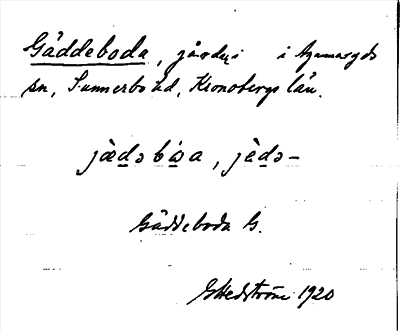 Gäddeboda, gårdar i Agunnaryds
sn, Sunnerbo hd, Kronobergs län.
jæ̀dəbo̱a, jèdə-
Gäddeboda G.
G Hedström 1920